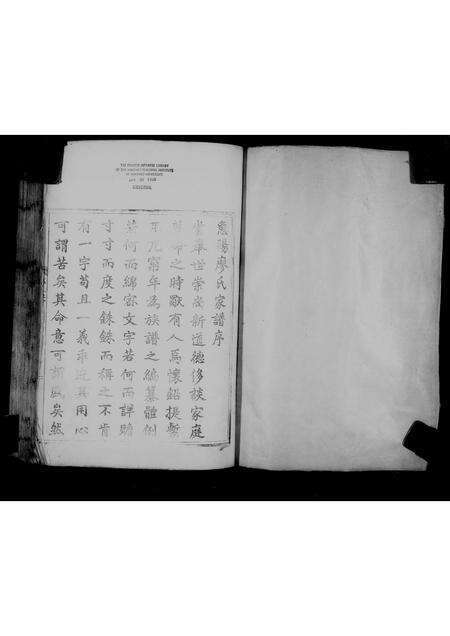 THE CHINESE-JAPANESE LIBRARY
OF THE HARVARD-YENCHING INSTITUTE
AT HARVARD UNIVERSITY
惠陽廖氏家譜序
當舉世崇尚新道德侈談家庭
命之時有人焉懷鉛提槧
兀兀窮年為族譜之編纂體例
若何而綿密文字若何而詳贍
寸寸而度之銖銖而稱之不肯
有一字苟且一義乖其用心
可謂苦矣其命意可矣然